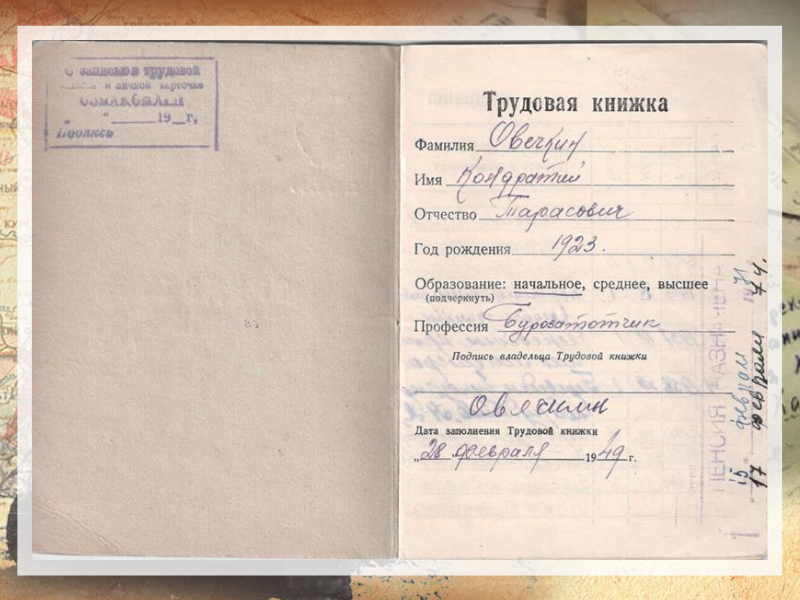 С записью в трудовой
и личной карточке
ОЗНАКОМЛЕН
„ “ 19 г.
Подпись
Трудовая книжка
Фамилия Овечкин
Имя Кондратий
Отчество Тарасович
Год рождения 1923.
Образование: начальное, среднее, высшее
(подчеркнуть)
Профессия Бурозаточник
Подпись владельца Трудовой книжки
Овячкин
Дата заполнения Трудовой книжки
„28 февраля 1949 г.
ПЕНСИЯ НАЗНАЧЕНА
15 февраля 71
17 февраля 74.